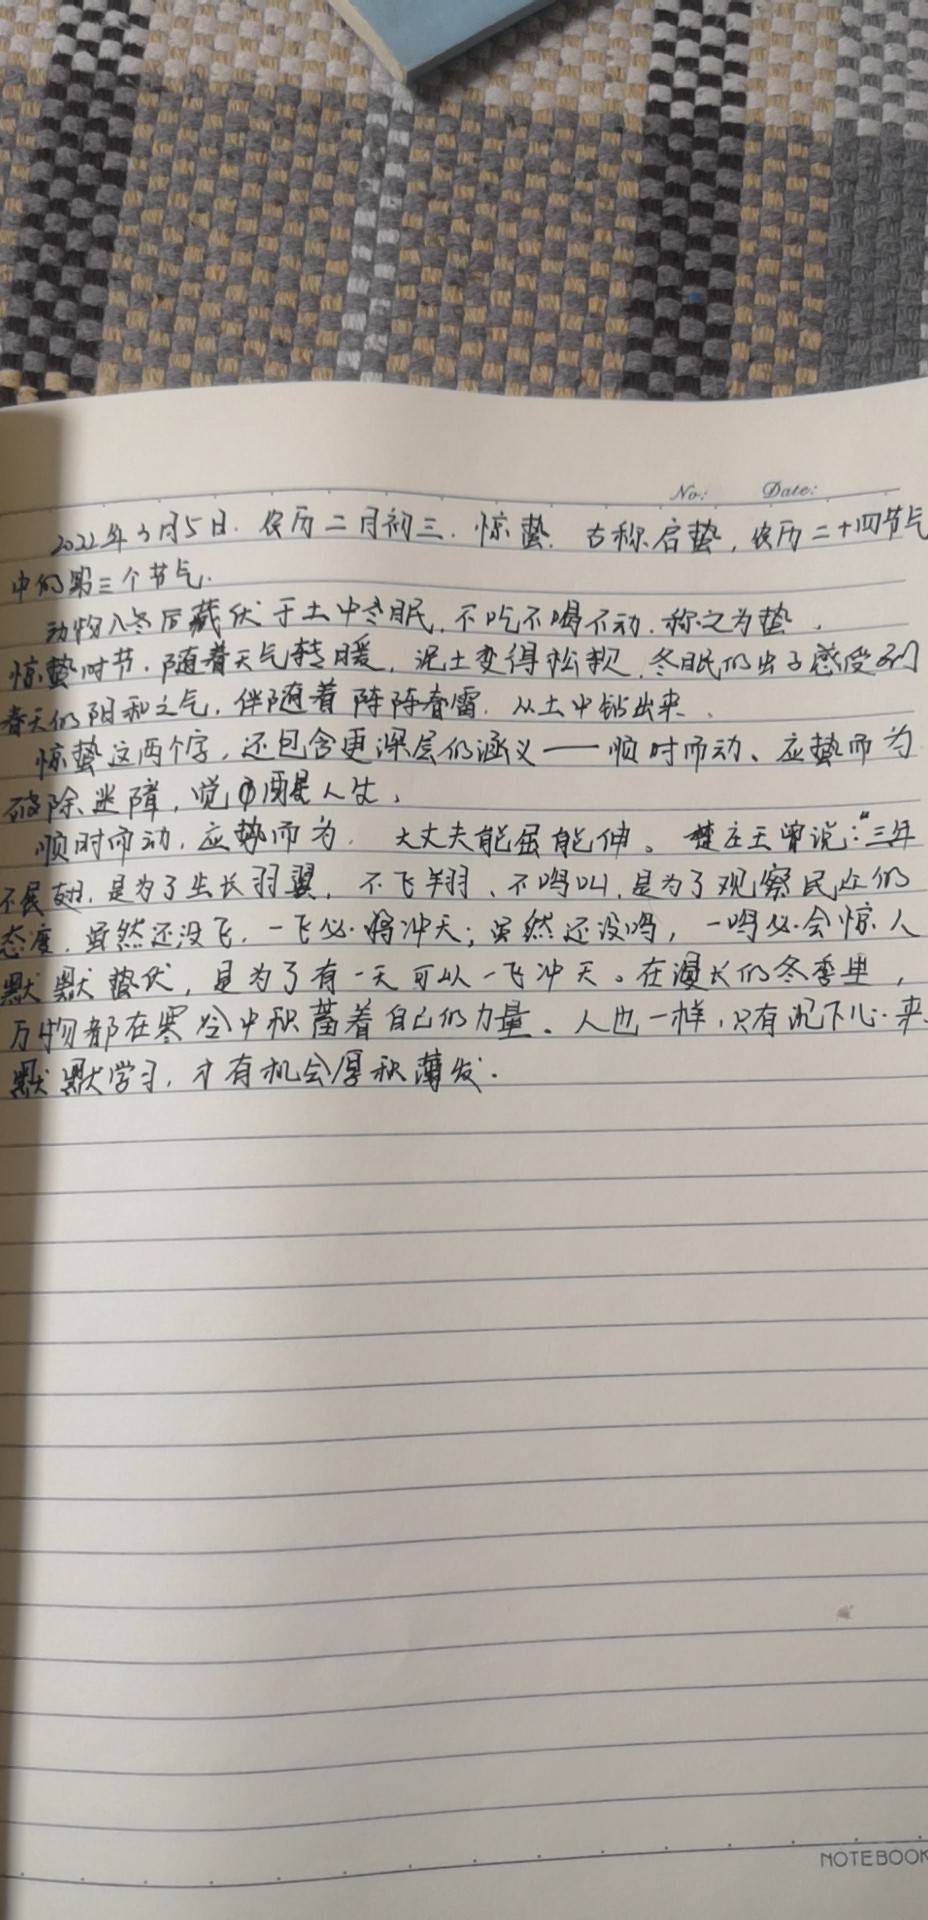 No: Date:
2022年3月5日. 农历二月初三. 惊蛰. 古称启蛰, 农历二十四节气
中的第三个节气.
动物入冬后藏伏于土中冬眠, 不吃不喝不动. 称之为蛰.
惊蛰时节. 随着天气转暖, 泥土变得松软. 冬眠的虫子感受到
春天的阳和之气. 伴随着阵阵春雷. 从土中钻出来.
惊蛰这两个字, 还包含更深层的涵义——顺时而动、应蛰而为
破除迷障, 觉 人生.
顺时而动, 应势而为. 大丈夫能屈能伸。楚庄王曾说:“三年
不展翅, 是为了生长羽翼, 不飞翔、不鸣叫, 是为了观察民众的
态度. 虽然还没飞, 一飞必将冲天; 虽然还没鸣, 一鸣必会惊人
默默蛰伏, 是为了有一天可以一飞冲天。在漫长的冬季里,
万物都在寒冷中积蓄着自己的力量。人也一样, 只有沉下心来
默默学习, 才有机会厚积薄发.
NOTEBOOK